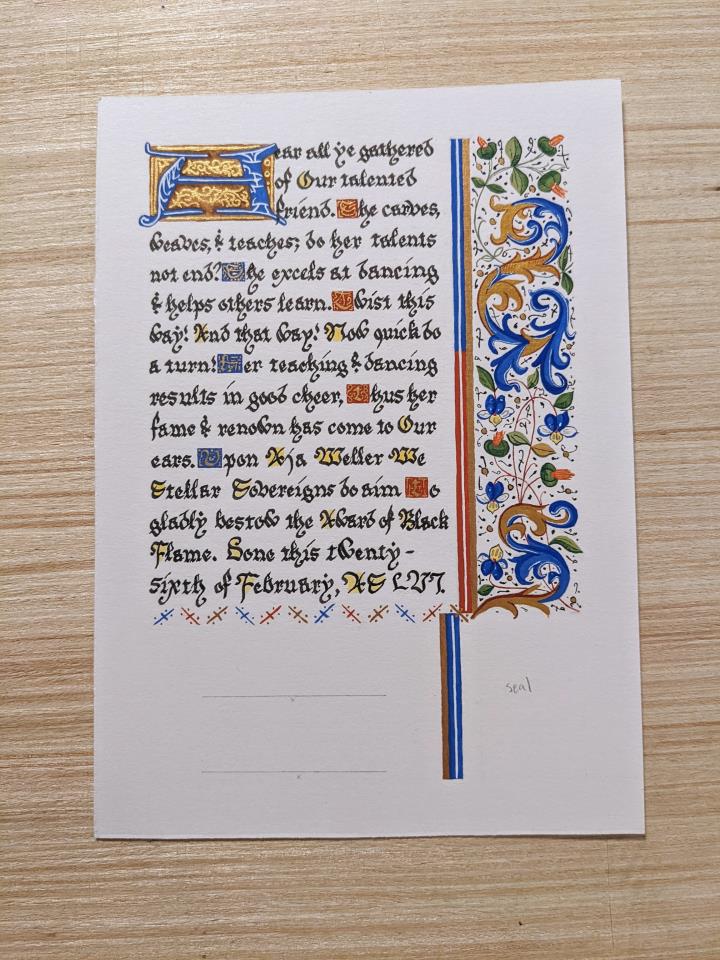 Hear all ye gathered
of Our talented
friend. She carves,
weaves, & teaches; do her talents
not end? She excels at dancing
& helps others learn. Twist this
way! And that way! Now quick do
a turn! Her teaching & dancing
results in good cheer, Thus her
fame & renown has come to Our
ears. Upon Aja Weller We
Stellar Sovereigns do aim To
gladly bestow the Award of Black
Flame. Done this twenty-
sixth of February, AS LVI.
seal